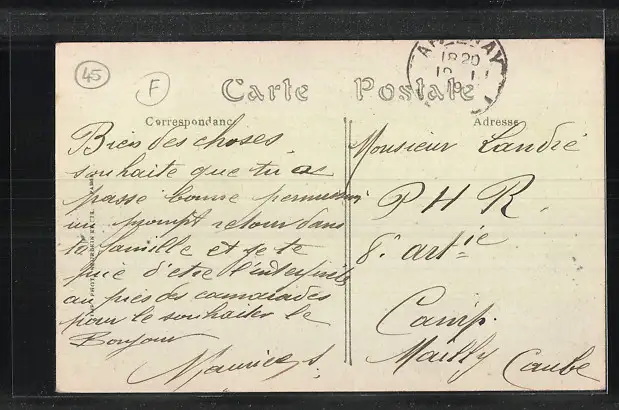 45
F
ARTENAY
18 20
Carte Postale
Correspondance
Adresse
Bien des choses,
souhaite que tu as
passé bonne permission
un prompt retour dans
ta famille et je te
prie d'être l'interprète
au près des camarades
pour le souhaiter le
Bonjour
Maurice
Monsieur Landré
P H R.
8e artie
Camp.
Mailly (Aube